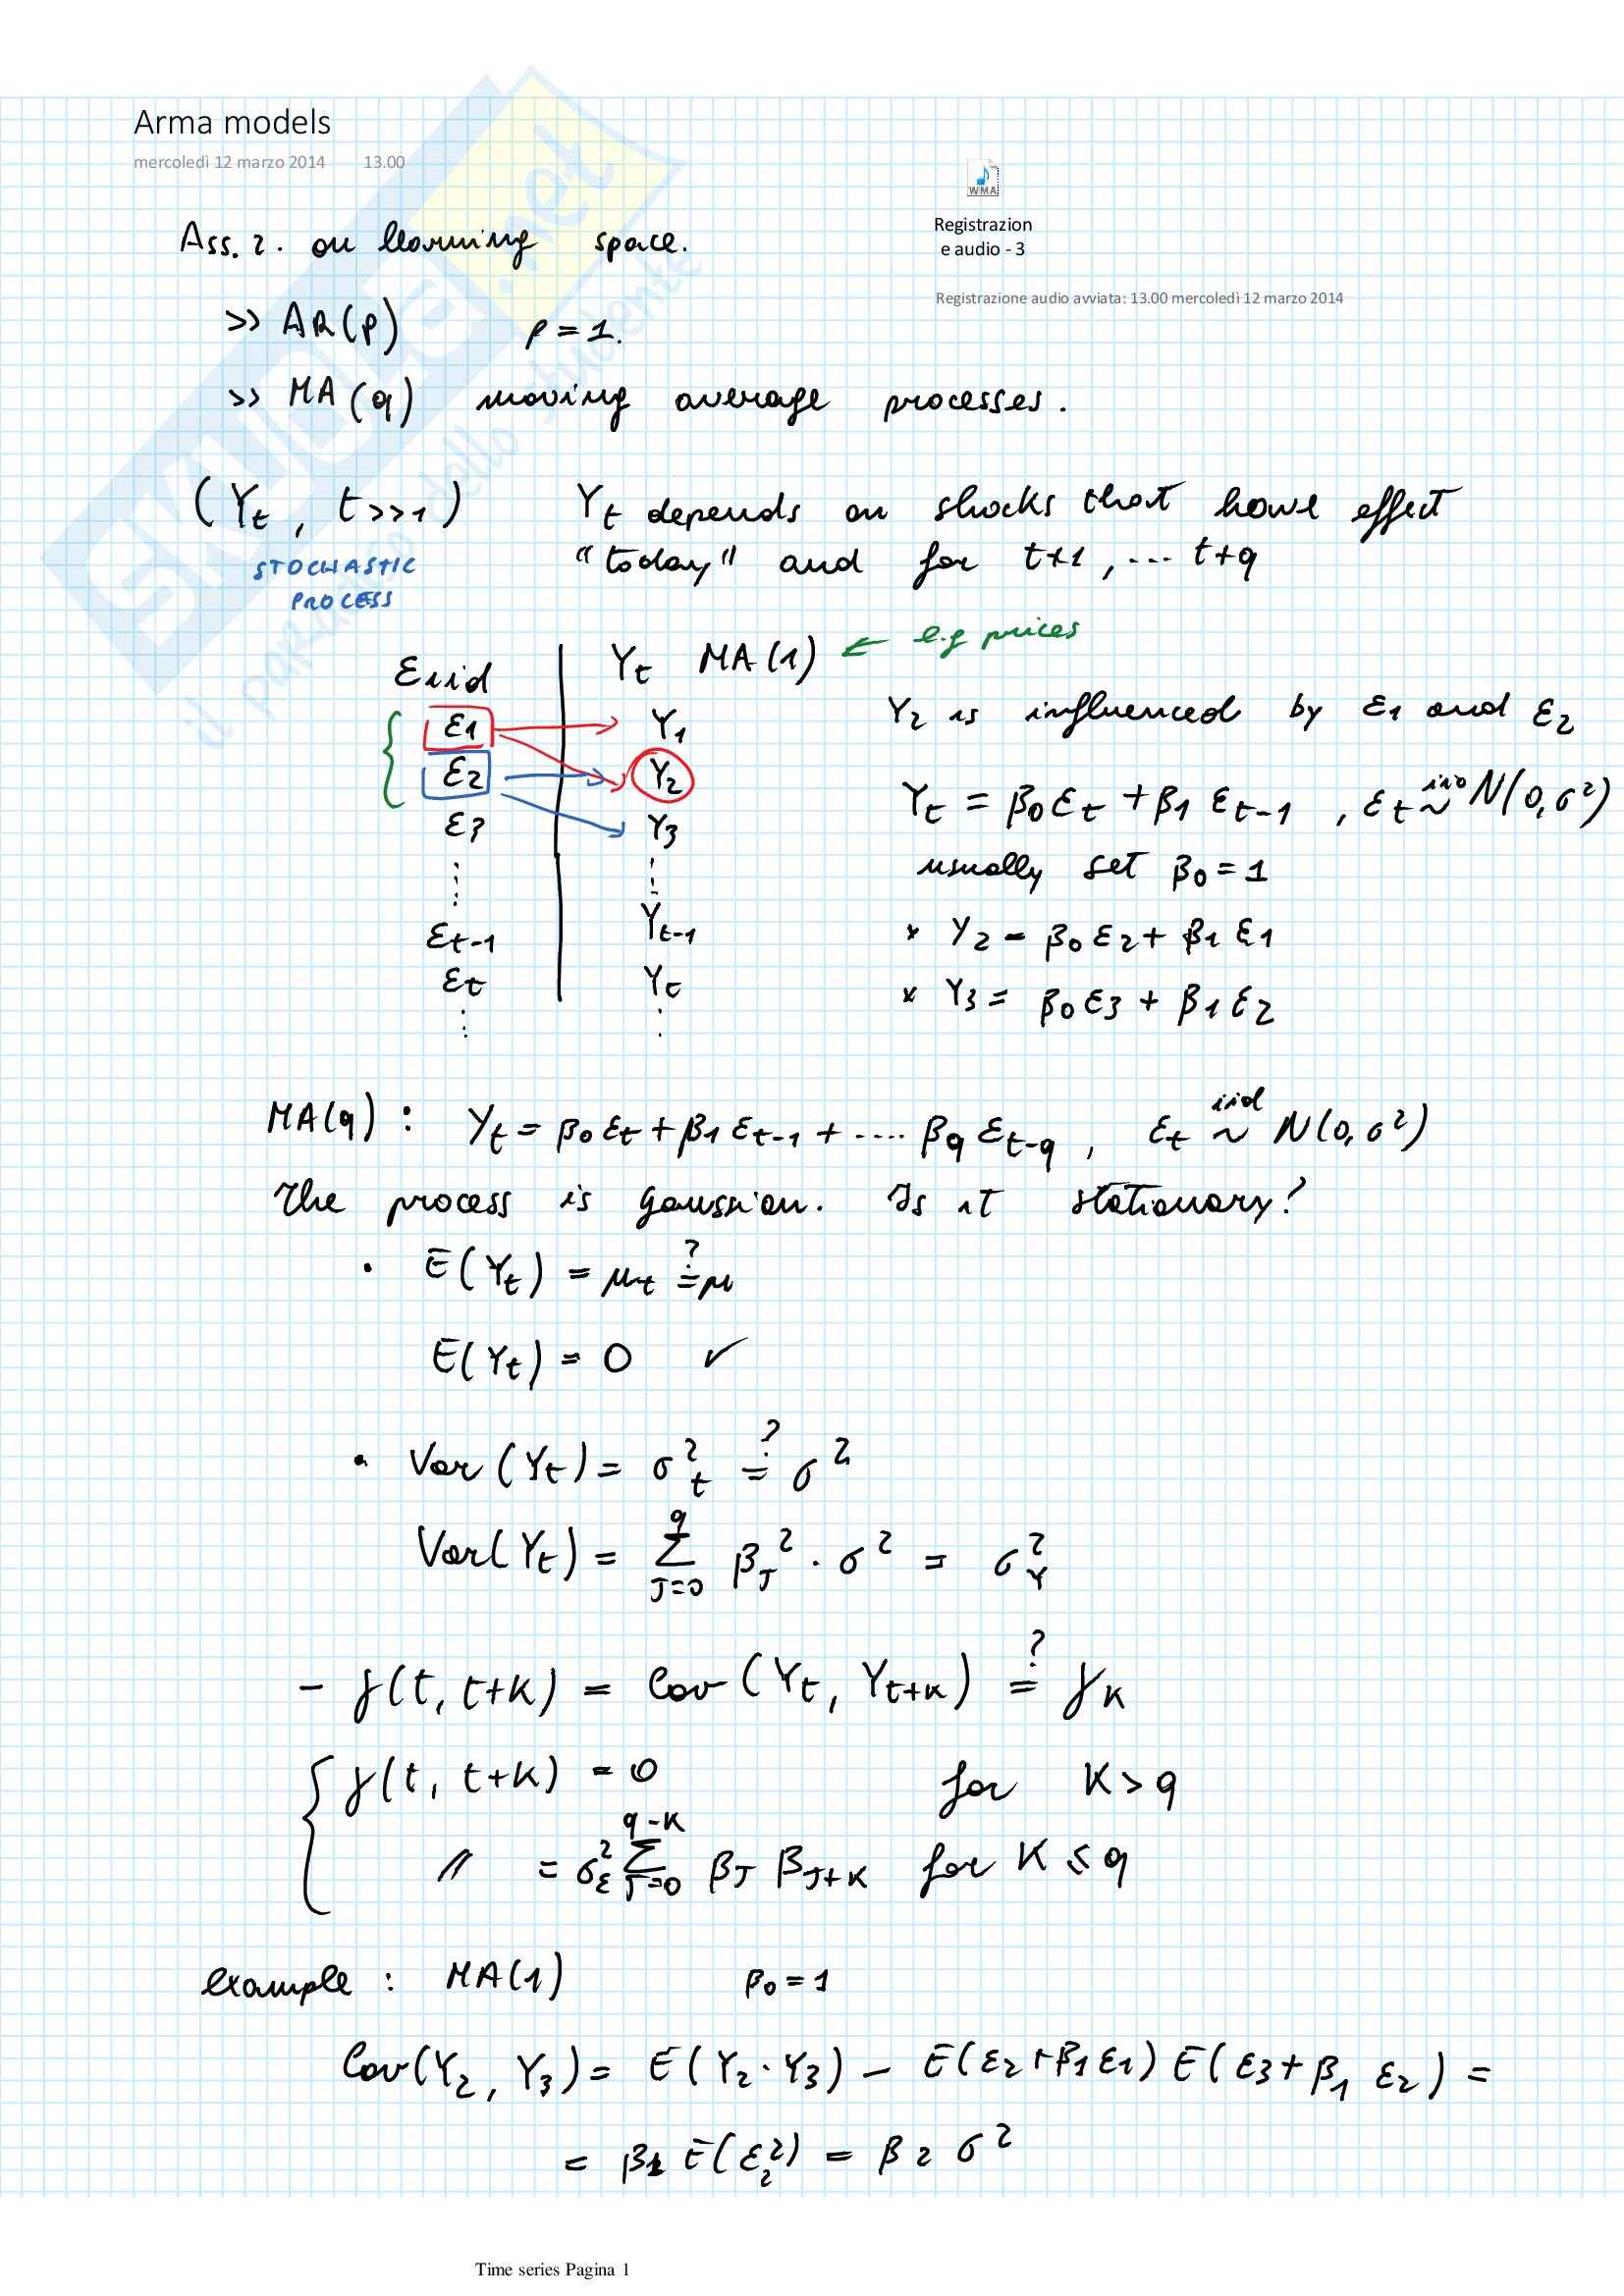 Arma models
mercoledì 12 marzo 2014 13.00
WMA
Registrazion
e audio - 3
Registrazione audio avviata: 13.00 mercoledì 12 marzo 2014
SKUOLA.net
il paradiso dello studente
Ass. 2. on learning space.
>> AR(p) p = 1.
>> MA(q) moving average processes.
(Yt, t>>1) Yt depends on shocks that have effect
STOCHASTIC
PROCESS
"today" and for t+1, ... t+q
Yt MA(1) ← e.g prices
ε iid
ε1 Y1 Y2 is influenced by ε1 and ε2
ε2 Y2 Yt = β0 εt + β1 εt-1 , εt iid ~ N(0, σ²)
ε3 Y3
usually set β0 = 1
⋮ ⋮
εt-1 Yt-1 * Y2 = β0 ε2 + β1 ε1
εt Yt * Y3 = β0 ε3 + β1 ε2
⋮ ⋮
MA(q) : Yt = β0 εt + β1 εt-1 + .... βq εt-q , εt iid ~ N(0, σ²)
The process is gaussian. Is it stationary?
• E(Yt) = μt ?= μ
E(Yt) = 0 ✓
• Var(Yt) = σ²t ?= σ²
Var(Yt) = Σ J=0 q βJ² · σ² = σ²Y
- γ(t, t+k) = Cov(Yt, Yt+k) ?= γk
{ γ(t, t+k) = 0 for K > q
// = σ²ε Σ J=0 q-k βJ βJ+k for K ≤ q
example : MA(1) β0 = 1
Cov(Y2, Y3) = E(Y2 · Y3) - E(ε2 + β1 ε1) E(ε3 + β1 ε2) =
= β1 E(ε2²) = β2 σ²
Time series Pagina 1